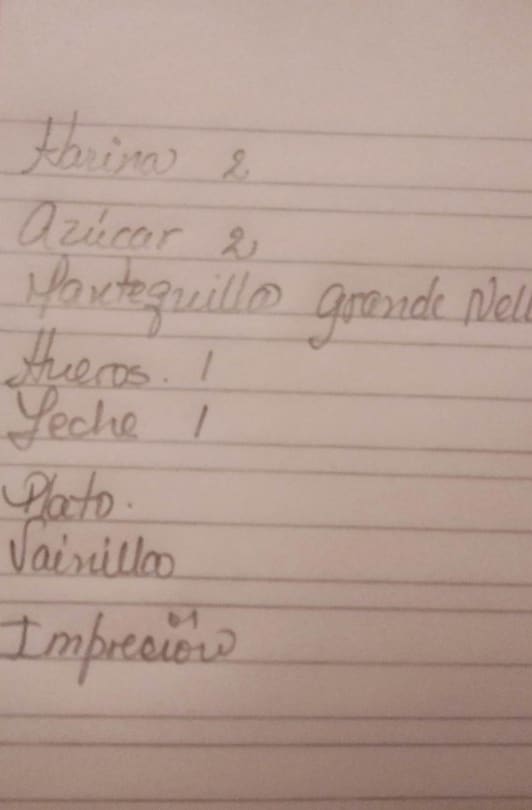 Harina 2
Azúcar 2
Mantequilla grande Nell
Hueros. 1
Leche 1
Plato.
Vainilla
Impreción